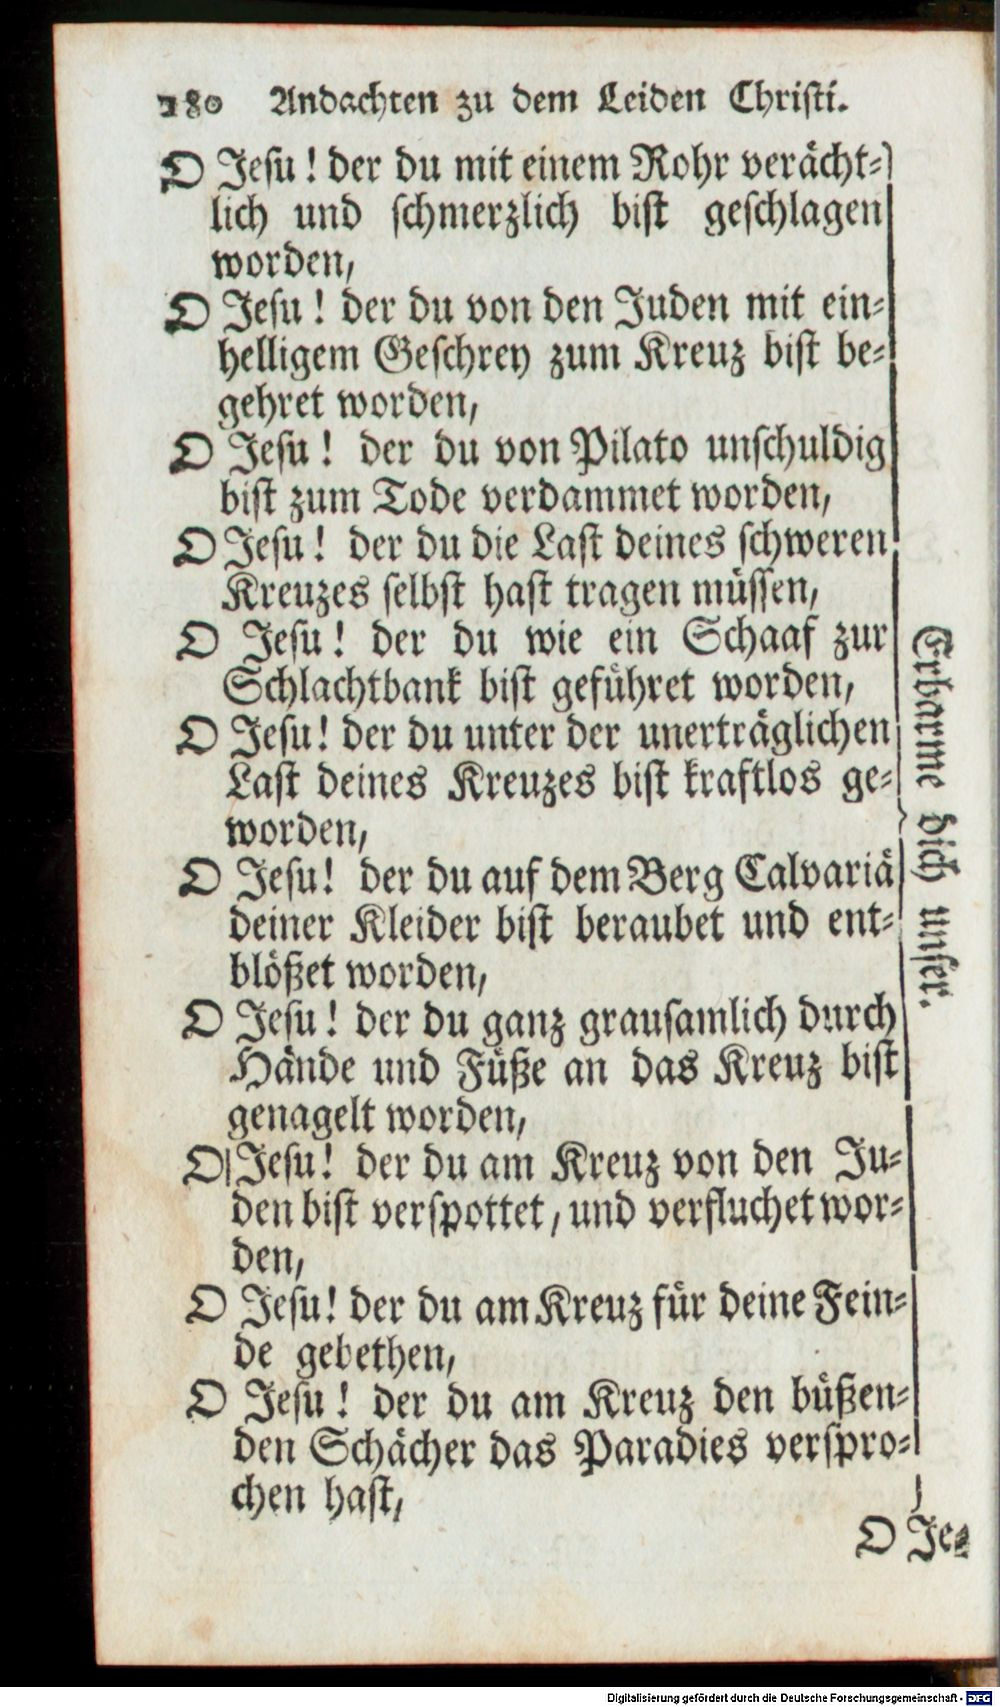 180 Andachten zu dem Leiden Christi.
O Jesu! der du mit einem Rohr verächt-
lich und schmerzlich bist geschlagen
worden,
O Jesu! der du von den Juden mit ein-
helligem Geschrey zum Kreuz bist be-
gehret worden,
O Jesu! der du von Pilato unschuldig
bist zum Tode verdammet worden,
O Jesu! der du die Last deines schweren
Kreuzes selbst hast tragen müssen,
O Jesu! der du wie ein Schaaf zur
Schlachtbank bist geführet worden,
O Jesu! der du unter der unerträglichen
Last deines Kreuzes bist kraftlos ge-
worden,
O Jesu! der du auf dem Berg Calvariä
deiner Kleider bist beraubet und ent-
blößet worden,
O Jesu! der du ganz grausamlich durch
Hände und Füße an das Kreuz bist
genagelt worden,
O Jesu! der du am Kreuz von den Ju-
den bist verspottet, und verfluchet wor-
den,
O Jesu! der du am Kreuz für deine Fein-
de gebethen,
O Jesu! der du am Kreuz den büßen-
den Schächer das Paradies verspro-
chen hast,
Erbarme dich unser.
O Je-
Digitalisierung gefördert durch die Deutsche Forschungsgemeinschaft - DFG